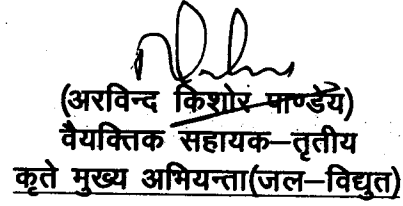 (अरविन्द किशोर पाण्डेय)
वैयक्तिक सहायक–तृतीय
कृते मुख्य अभियन्ता(जल–विद्युत)